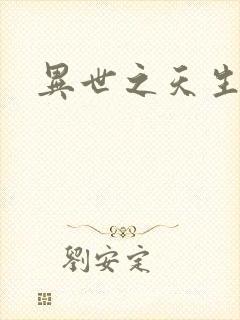 異世之天生
劉安定